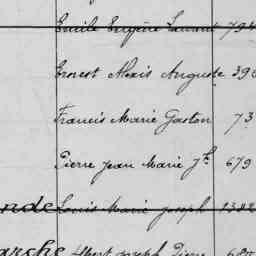 Emile Eugène 794
Ernest Alexis Auguste 390
Francis Marie Gaston 73
Pierre Jean Marie Jh 679
nde Louis Marie Joseph 1382
anche Albert Joseph Pierre 680